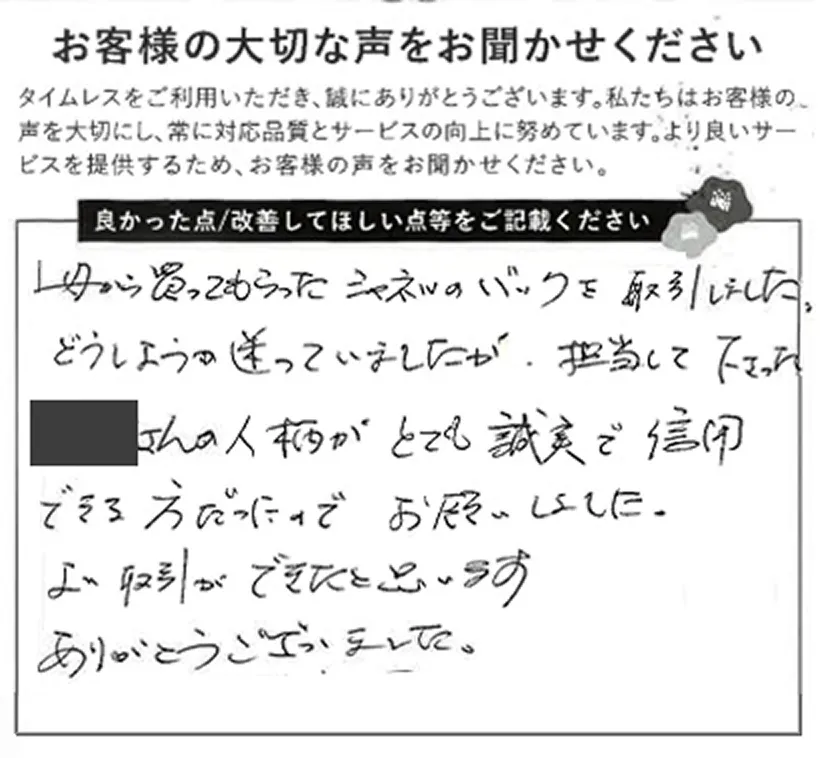 お客様の大切な声をお聞かせください
タイムレスをご利用いただき、誠にありがとうございます。私たちはお客様の
声を大切にし、常に対応品質とサービスの向上に努めています。より良いサー
ビスを提供するため、お客様の声をお聞かせください。
良かった点/改善してほしい点等をご記載ください
母から買ってもらったシャネルのバックを取引しました。
どうしようか迷っていましたが、担当して下さった
さんの人柄がとても誠実で信用
できる方だったのでお願いしました。
よい取引ができたと思います
ありがとうございました。